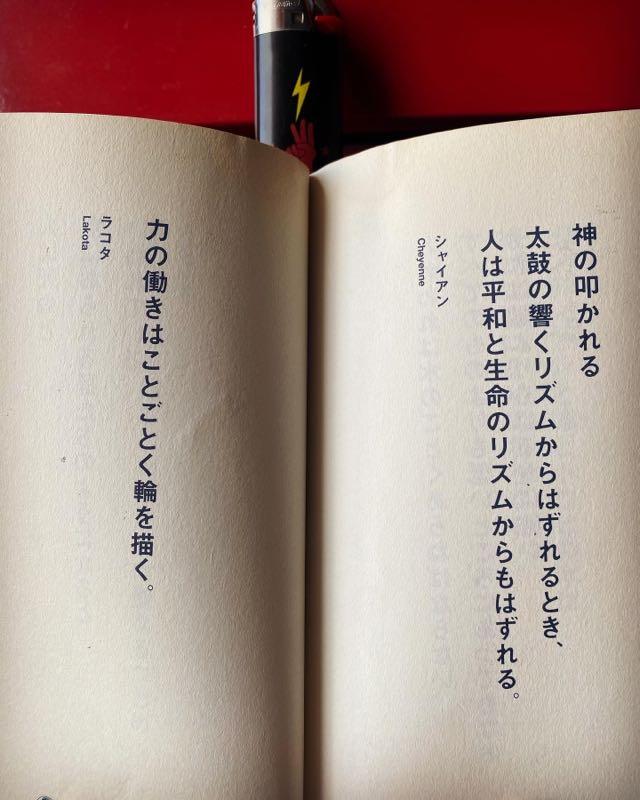 神の叩かれる
太鼓の響くリズムからはずれるとき、
人は平和と生命のリズムからもはずれる。
シャイアン
Cheyenne
力の働きはことごとく輪を描く。
ラコタ
Lakota